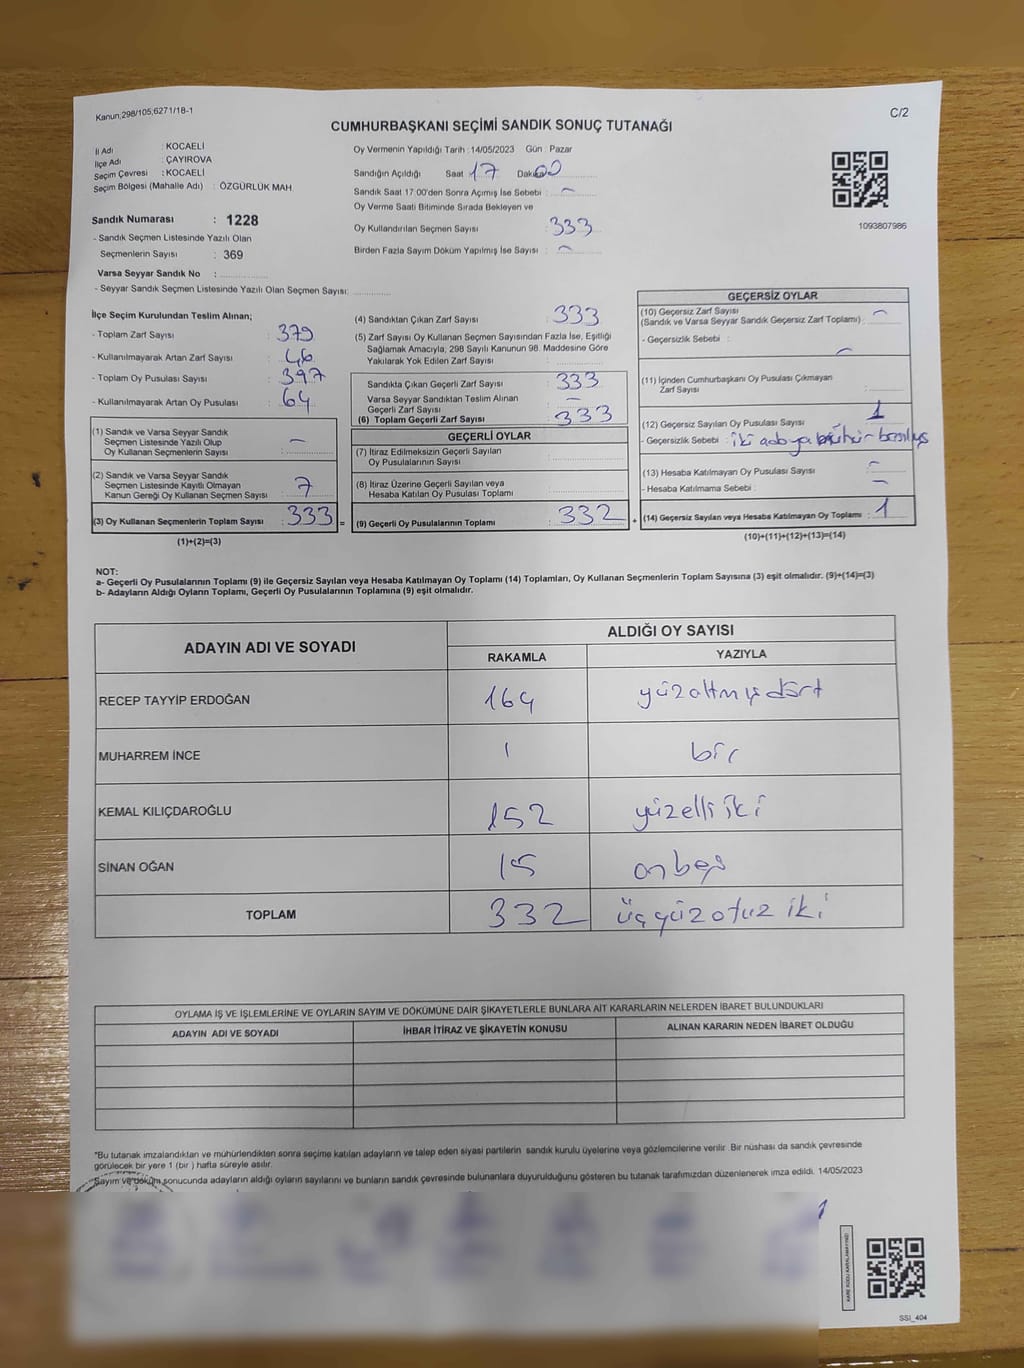 Kanun;298/105;6271/18-1
C/2
CUMHURBAŞKANI SEÇİMİ SANDIK SONUÇ TUTANAĞI
İl Adı : KOCAELİ
İlçe Adı : ÇAYIROVA
Seçim Çevresi : KOCAELİ
Seçim Bölgesi (Mahalle Adı) : ÖZGÜRLÜK MAH.
Sandık Numarası : 1228
- Sandık Seçmen Listesinde Yazılı Olan
Seçmenlerin Sayısı : 369
Varsa Seyyar Sandık No :
- Seyyar Sandık Seçmen Listesinde Yazılı Olan Seçmen Sayısı:
Oy Vermenin Yapıldığı Tarih :14/05/2023 Gün : Pazar
Sandığın Açıldığı Saat : 17 Dakika 00
Sandık Saat 17:00'den Sonra Açımış İse Sebebi : -
Oy Verme Saati Bitiminde Sırada Bekleyen ve
Oy Kullandırılan Seçmen Sayısı : 333
Birden Fazla Sayım Döküm Yapılmış İse Sayısı : -
1093807986
İlçe Seçim Kurulundan Teslim Alınan;
- Toplam Zarf Sayısı : 379
- Kullanılmayarak Artan Zarf Sayısı : 46
- Toplam Oy Pusulası Sayısı : 397
- Kullanılmayarak Artan Oy Pusulası : 64
(1) Sandık ve Varsa Seyyar Sandık
Seçmen Listesinde Yazılı Olup
Oy Kullanan Seçmenlerin Sayısı : -
(2) Sandık ve Varsa Seyyar Sandık
Seçmen Listesinde Kayıtlı Olmayan
Kanun Gereği Oy Kullanan Seçmen Sayısı : 7
(3) Oy Kullanan Seçmenlerin Toplam Sayısı : 333 =
(1)+(2)=(3)
(4) Sandıktan Çıkan Zarf Sayısı : 333
(5) Zarf Sayısı Oy Kullanan Seçmen Sayısından Fazla İse, Eşitliği
Sağlamak Amacıyla; 298 Sayılı Kanunun 98. Maddesine Göre
Yakılarak Yok Edilen Zarf Sayısı :
Sandıkta Çıkan Geçerli Zarf Sayısı : 333
Varsa Seyyar Sandıktan Teslim Alınan
Geçerli Zarf Sayısı : -
(6) Toplam Geçerli Zarf Sayısı : 333
GEÇERLİ OYLAR
(7) İtiraz Edilmeksizin Geçerli Sayılan
Oy Pusulalarının Sayısı :
(8) İtiraz Üzerine Geçerli Sayılan veya
Hesaba Katılan Oy Pusulası Toplamı :
(9) Geçerli Oy Pusulalarının Toplamı : 332 +
GEÇERSİZ OYLAR
(10) Geçersiz Zarf Sayısı
(Sandık ve Varsa Seyyar Sandık Geçersiz Zarf Toplamı) : -
- Geçersizlik Sebebi : -
(11) İçinden Cumhurbaşkanı Oy Pusulası Çıkmayan
Zarf Sayısı :
(12) Geçersiz Sayılan Oy Pusulası Sayısı : 1
- Geçersizlik Sebebi : iki
(13) Hesaba Katılmayan Oy Pusulası Sayısı : -
- Hesaba Katılmama Sebebi : -
(14) Geçersiz Sayılan veya Hesaba Katılmayan Oy Toplamı : 1
(10)+(11)+(12)+(13)=(14)
NOT:
a- Geçerli Oy Pusulalarının Toplamı (9) ile Geçersiz Sayılan veya Hesaba Katılmayan Oy Toplamı (14) Toplamları, Oy Kullanan Seçmenlerin Toplam Sayısına (3) eşit olmalıdır. (9)+(14)=(3)
b- Adayların Aldığı Oyların Toplamı, Geçerli Oy Pusulalarının Toplamına (9) eşit olmalıdır.
ADAYIN ADI VE SOYADI
ALDIĞI OY SAYISI
RAKAMLA YAZIYLA
RECEP TAYYİP ERDOĞAN 164 yüzaltmışdört
MUHARREM İNCE 1 bir
KEMAL KILIÇDAROĞLU 152 yüzelli iki
SİNAN OĞAN 15 onbeş
TOPLAM 332 üçyüzotuz iki
OYLAMA İŞ VE İŞLEMLERİNE VE OYLARIN SAYIM VE DÖKÜMÜNE DAİR ŞİKAYETLERLE BUNLARA AİT KARARLARIN NELERDEN İBARET BULUNDUKLARI
ADAYIN ADI VE SOYADI İHBAR İTİRAZ VE ŞİKAYETİN KONUSU ALINAN KARARIN NEDEN İBARET OLDUĞU
*Bu tutanak imzalandıktan ve mühürlendikten sonra seçime katılan adayların ve talep eden siyasi partilerin sandık kurulu üyelerine veya gözlemcilerine verilir. Bir nüshası da sandık çevresinde
görülecek bir yere 1 (bir ) hafta süreyle asılır.
Sayım ve döküm sonucunda adayların aldığı oyların sayılarını ve bunların sandık çevresinde bulunanlara duyurulduğunu gösteren bu tutanak tarafımızdan düzenlenerek imza edildi. 14/05/2023
KARE KODU KAPATMAYINIZ!
SSI_404